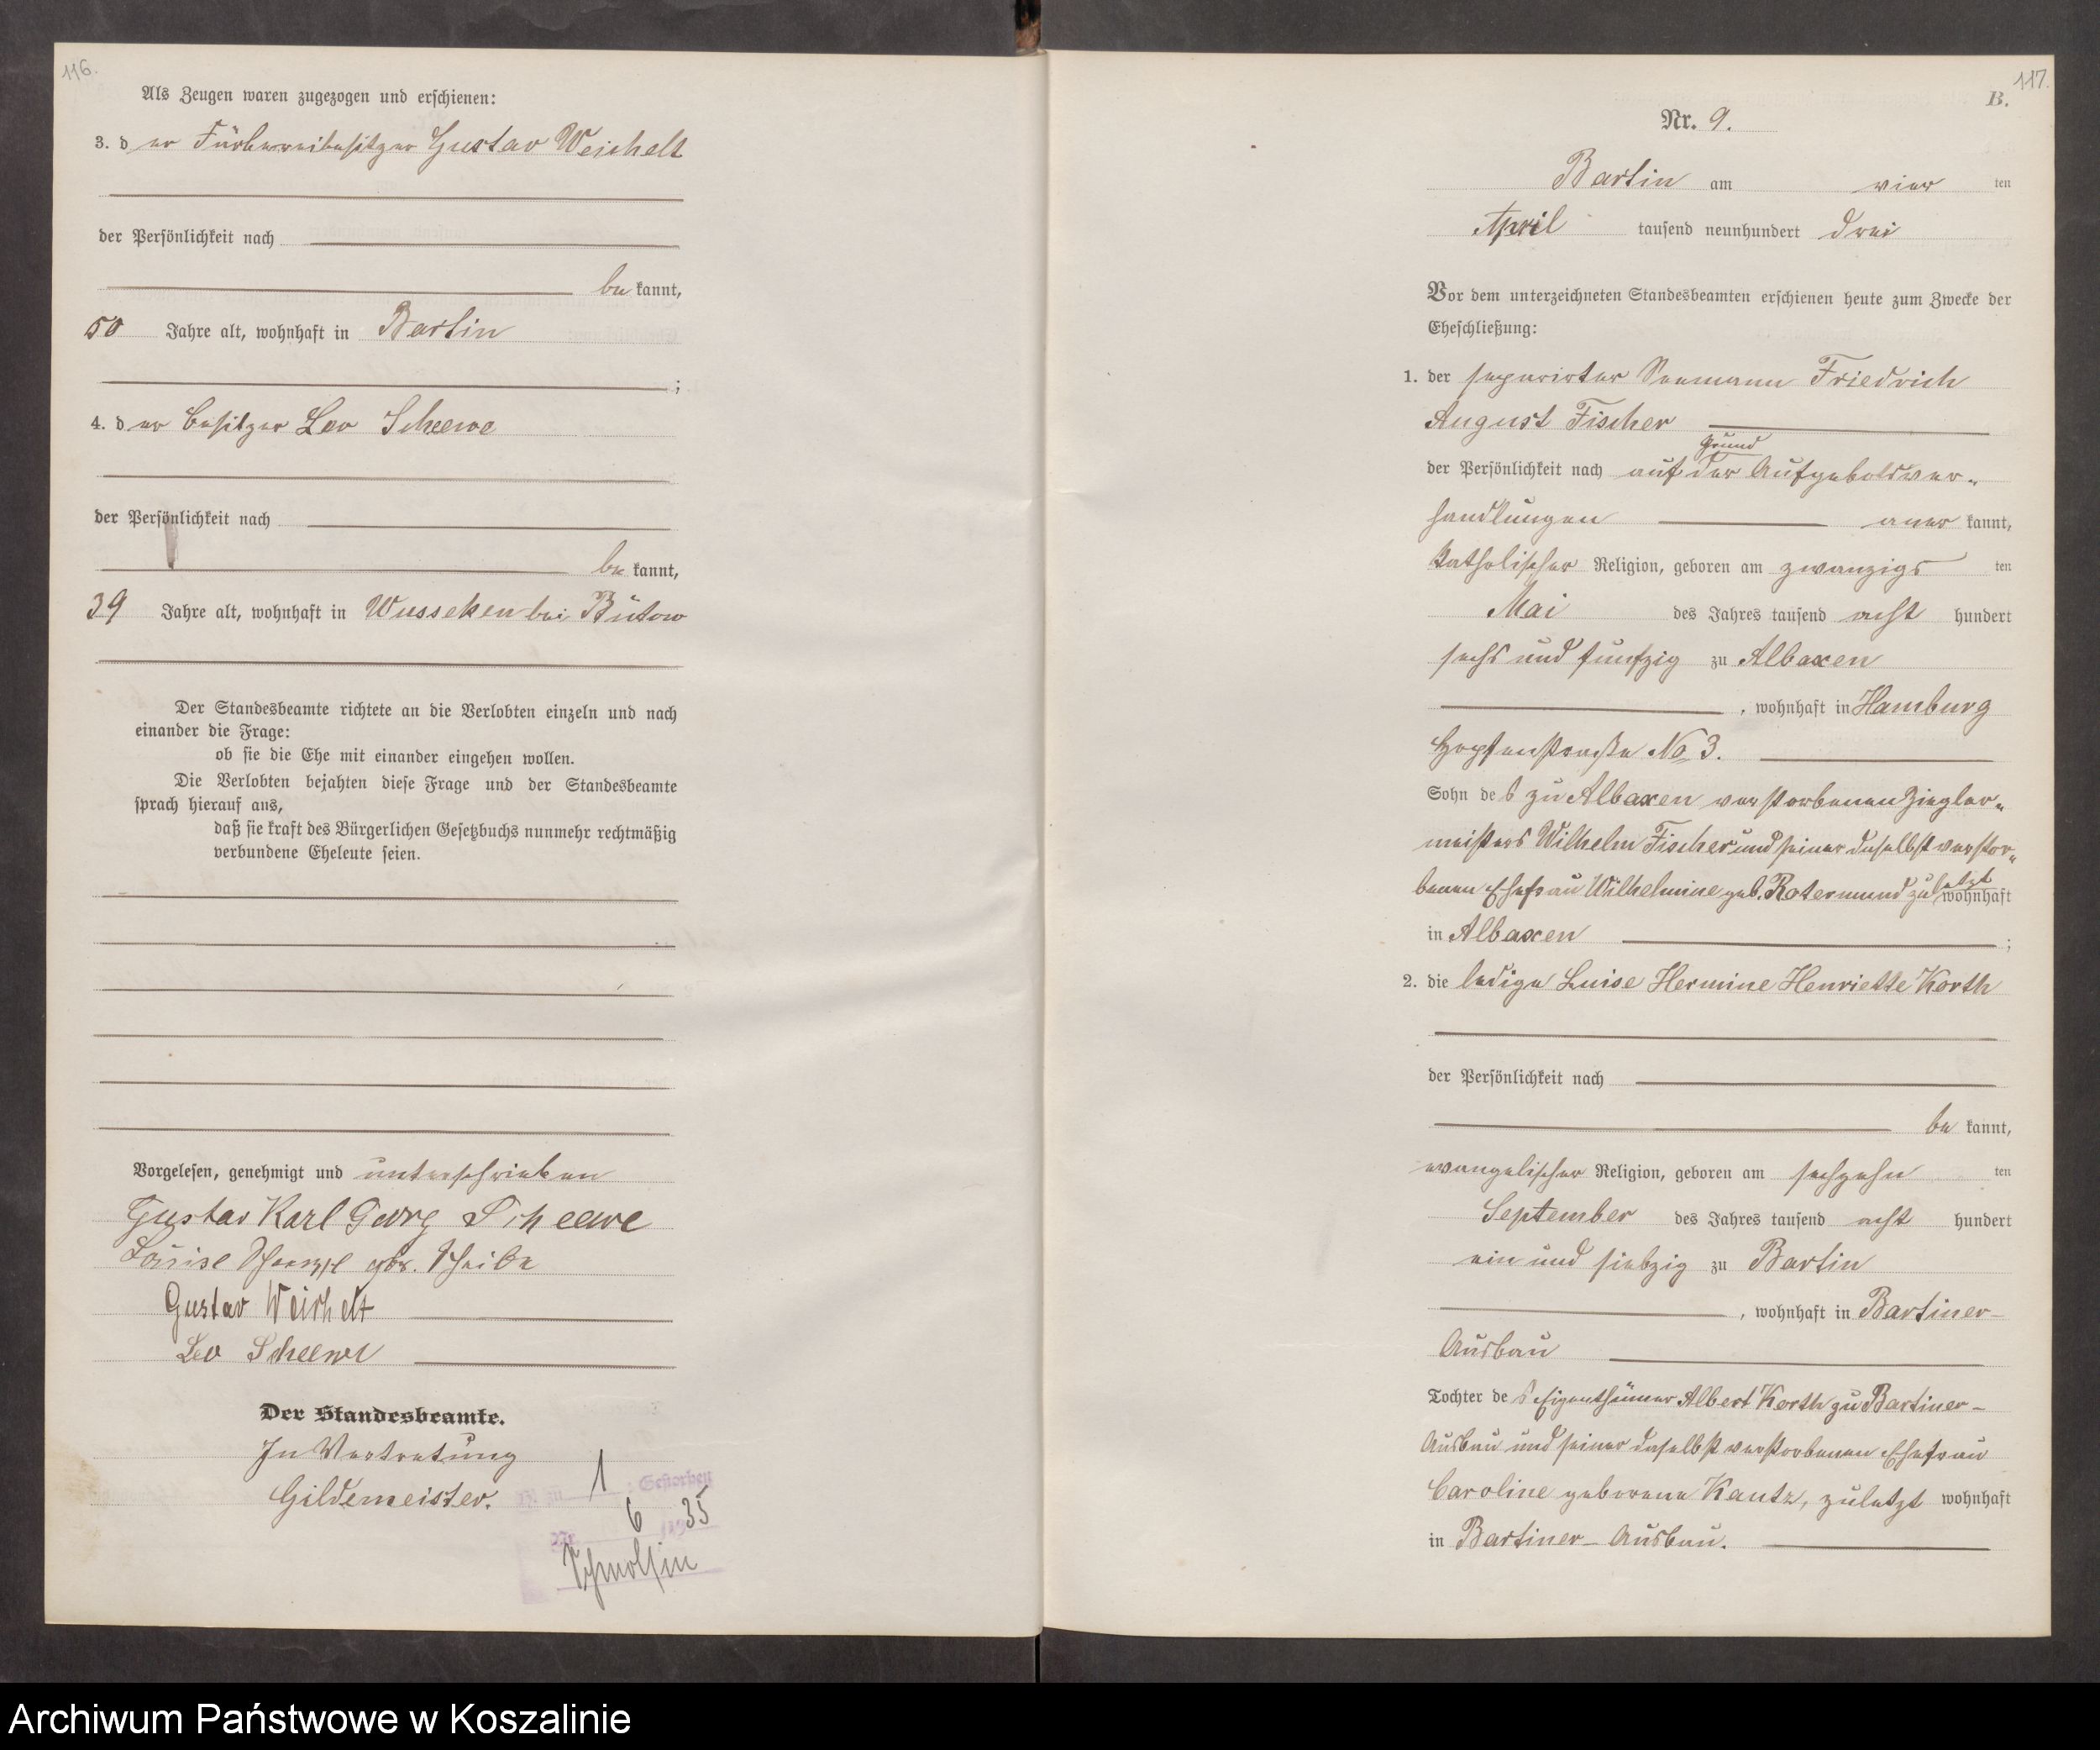 116.
Als Zeugen waren zugezogen und erschienen:
3. der Färbereibesitzer Gustav Weichelt
der Persönlichkeit nach
bekannt,
50 Jahre alt, wohnhaft in Bartin
;
4. der Besitzer Leo Scheewe
der Persönlichkeit nach
bekannt,
39 Jahre alt, wohnhaft in Wusseken bei Bütow
Der Standesbeamte richtete an die Verlobten einzeln und nach
einander die Frage:
ob sie die Ehe mit einander eingehen wollen.
Die Verlobten bejahten diese Frage und der Standesbeamte
sprach hierauf aus,
daß sie kraft des Bürgerlichen Gesetzbuchs nunmehr rechtmäßig
verbundene Eheleute seien.
Vorgelesen, genehmigt und unterschrieben
Gustav Karl Georg Scheewe
Louise geb.
Gustav Weichelt
Leo Scheewe
Der Standesbeamte.
In Vertretung
Gildemeister.
zu 1 : Gestorben
Nr. 6 1935
Schmolsin
117.
B.
Nr. 9.
Bartin am vierten
April tausend neunhundert drei
Vor dem unterzeichneten Standesbeamten erschienen heute zum Zwecke der
Eheschließung:
1. der separirter Seemann Friedrich
August Fischer
Grund
der Persönlichkeit nach auf der Aufgebotsver-
handlungen anerkannt,
katholischer Religion, geboren am zwanzigsten
Mai des Jahres tausend achthundert
sechs und fünfzig zu Albaxen
, wohnhaft in Hamburg
Hopfenstraße No 3.
Sohn des zu Albaxen verstorbenen Ziegler-
meisters Wilhelm Fischer und seiner daselbst verstor-
benen Ehefrau Wilhelmine geb. Rotermund zuletzt wohnhaft
in Albaxen ;
2. die ledige Luise Hermine Henriette Korth
der Persönlichkeit nach
bekannt,
evangelischer Religion, geboren am sechzehnten
September des Jahres tausend achthundert
ein und siebzig zu Bartin
, wohnhaft in Bartiner-
Ausbau
Tochter des Eigenthümer Albert Korth zu Bartiner-
Ausbau und seiner daselbst verstorbenen Ehefrau
Caroline geborene Kautz, zuletzt wohnhaft
in Bartiner-Ausbau.
Archiwum Państwowe w Koszalinie